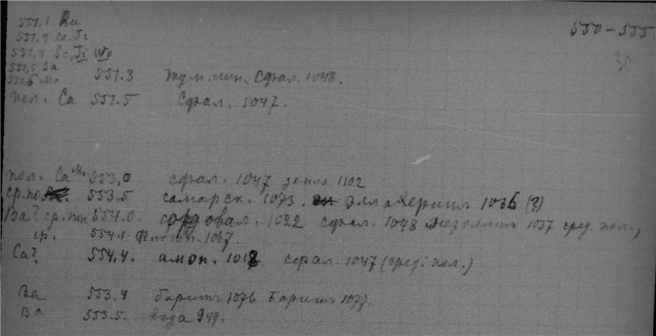 551.1 Ru
550-555.
551.2 Ce. Ti
30
551.4 Sc, Ti Wo
551,5 La
551.6 Mo
551.3 сфал. 1048.
пол. Ca 551.5 Сфал. 1047.
пол. Ca Mo 553,0 сфал. 1047 1102
ср. 553.5 самарск. 1073. эллахерит 1036 (?)
Ba? ср. пол 554.0. сордовал. 1022 сфал. 1048 мезолит 1037 сред. пол.,
ср. 554.1. 1067.
Ca? 554.4. амон. 1018 сфал. 1047 (сред. пол.)
Ba 553.4 барит 1076 Барит 1077.
Ba 553.5. вода 949.